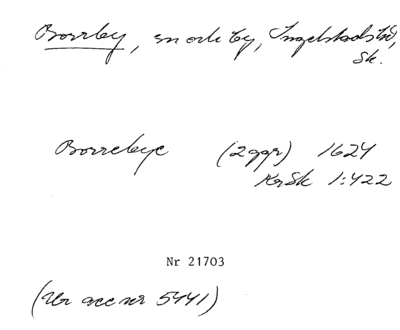 Borrby, sn o by, Ingelstads hd,
Sk.
Borrebye (2 ggr) 1624
KrSk 1:422
Nr 21703
(Ur acc nr 5441)